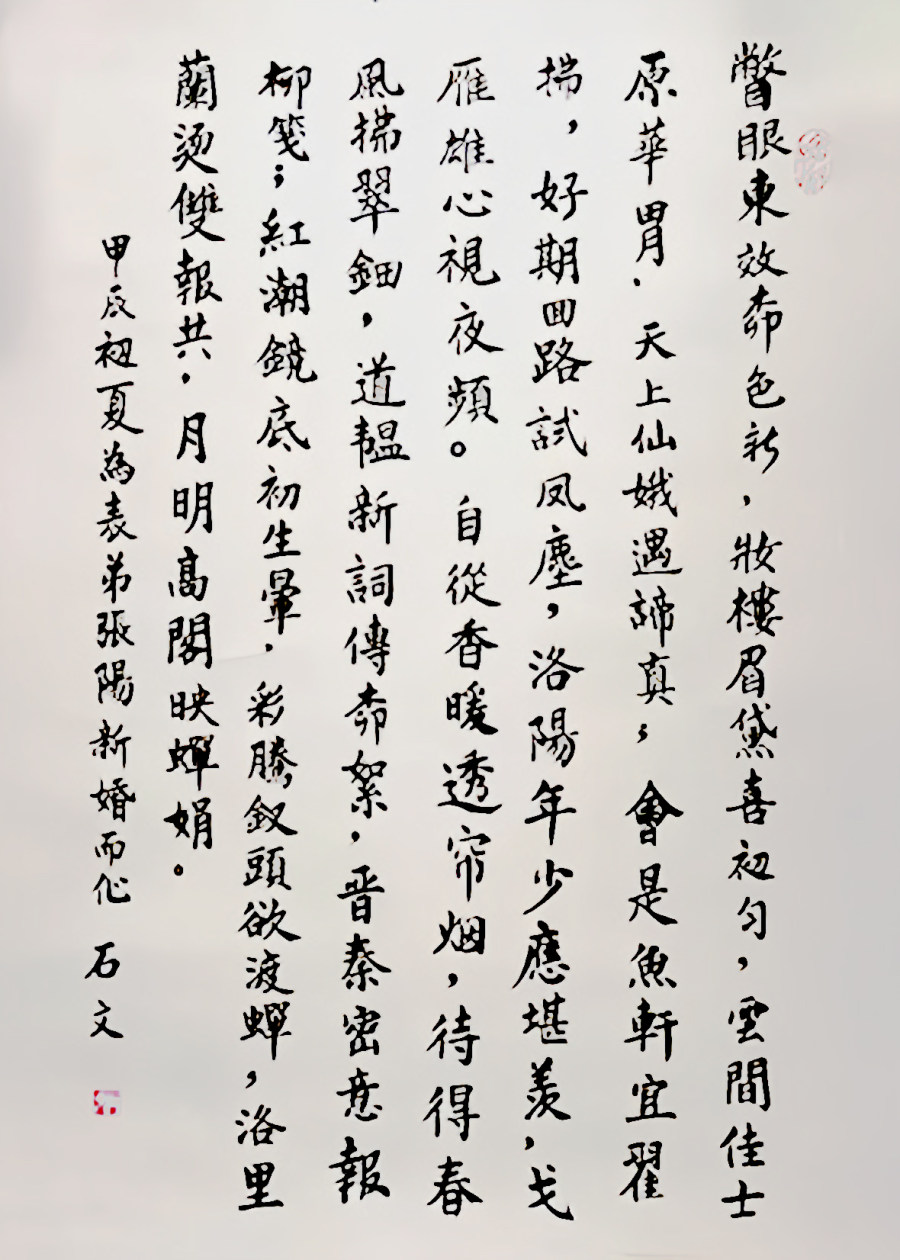 瞥眼東效柰色新，妝樓眉黛喜初勻，雲間佳士
原華胄．天上仙娥遇諦真；會是魚軒宜翟
拂，好期回路試凤塵，洛陽年少應堪羨，戈
雁雄心視夜頻。自從香暖透帘烟，待得春
風拂翠鈿，道韞新詞傳柰絮，晋秦密意報
柳箋；紅潮鏡底初生暈．彩騰釵頭欲渡蟬，洛里
蘭燙雙報共，月明高閣映蟬娟。
甲辰初夏為表弟張陽新婚而作 石文